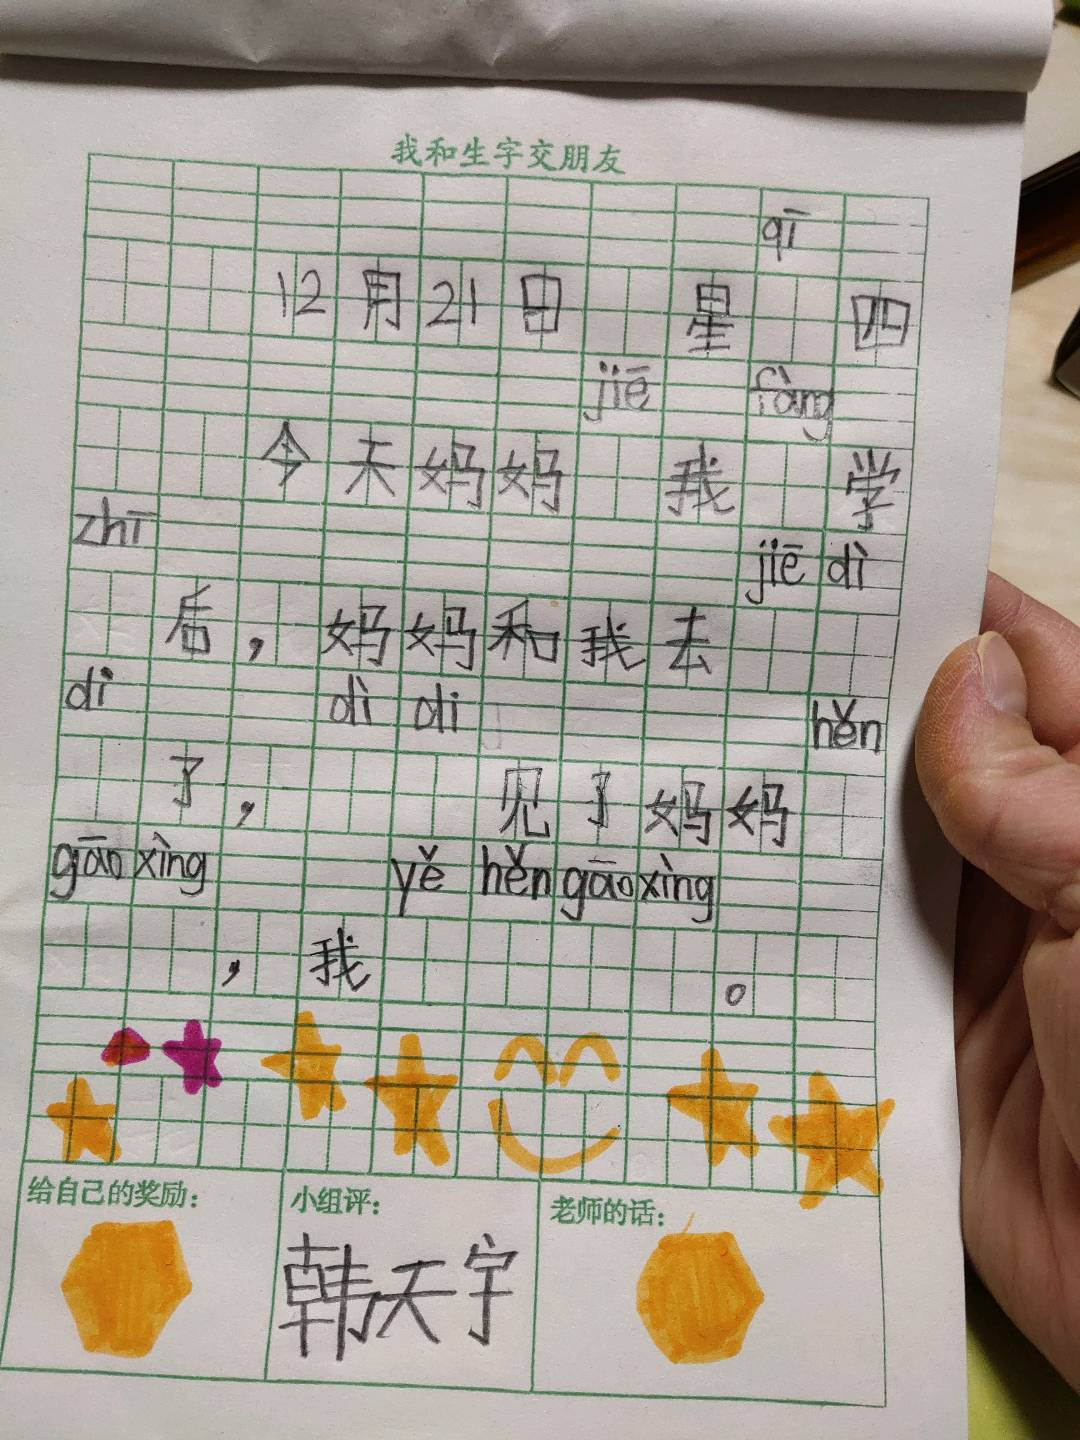 我和生字交朋友
qī
12月21日 星 四
jiē fàng
今天妈妈 我 学
zhī jiē dì
后，妈妈和我去
di dì di hěn
了， 见了妈妈
gāo xìng yě hěn gāo xìng
， 我 。
给自己的奖励：
小组评：
老师的话：
韩天宇